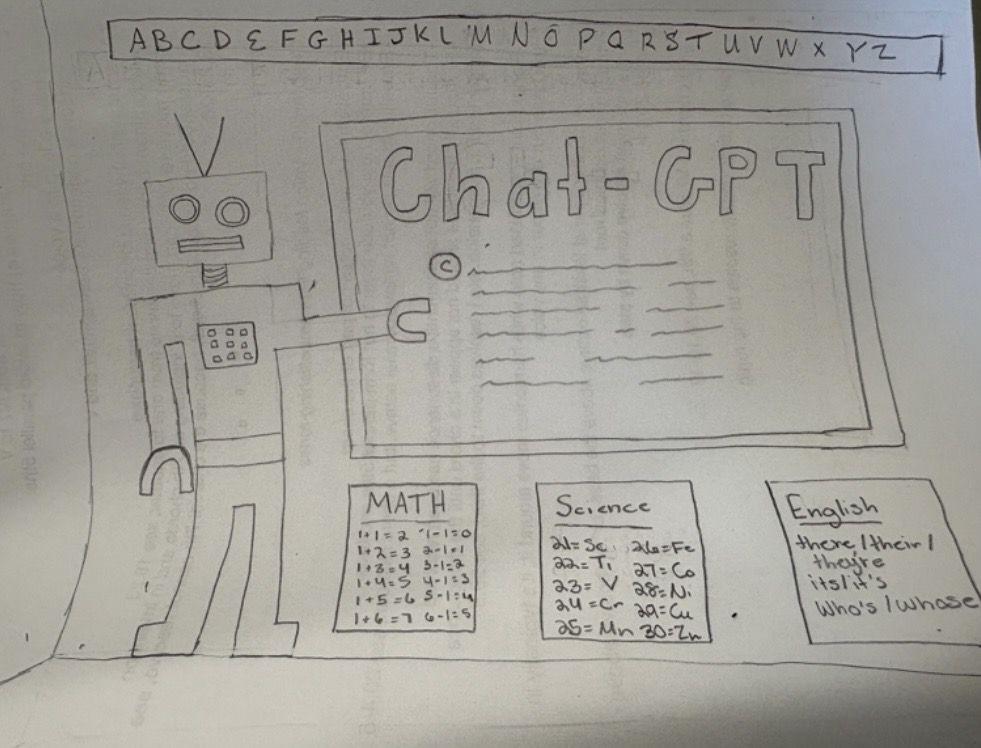 ABCDEFGHIJKLMNOPQRSTUVWXYZ
Chat-GPT
©
MATH
1+1=2 1-1=0
1+2=3 2-1=1
1+3=4 3-1=2
1+4=5 4-1=3
1+5=6 5-1=4
1+6=7 6-1=5
Science
21=Sc 26=Fe
22=Ti 27=Co
23=V 28=Ni
24=Cr 29=Cu
25=Mn 30=Zn
English
there/their/
they're
its/it's
who's/whose